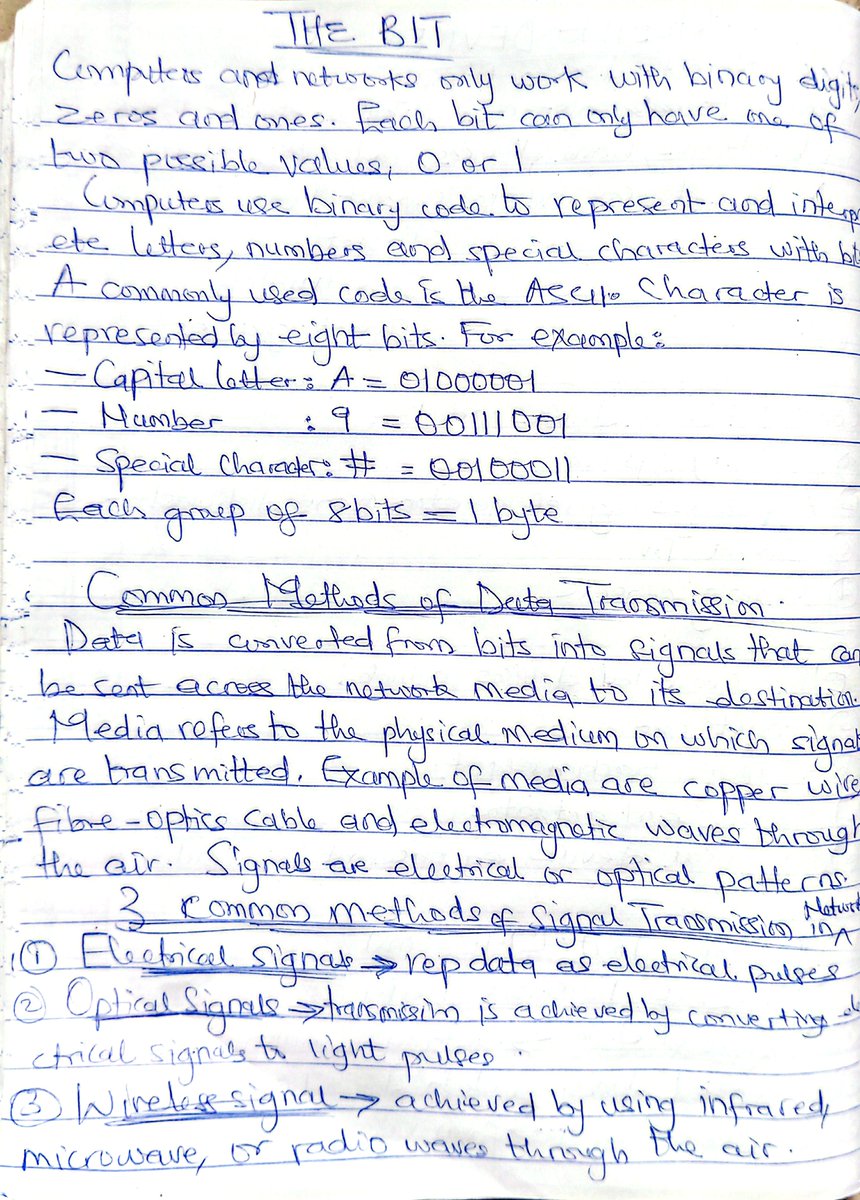 THE BIT
Computers and networks only work with binary digits
zeros and ones. Each bit can only have one of
two possible values, 0 or 1
Computers use binary code to represent and interpr
ete letters, numbers and special characters with bi
A commonly used code is the ASCII. Character is
represented by eight bits. For example:
- Capital letter: A = 01000001
- Number : 9 = 00111001
- Special Character: # = 00100011
Each group of 8bits = 1 byte
Common Methods of Data Transmission.
Data is converted from bits into signals that can
be sent across the network media to its destination.
Media refers to the physical medium on which signal
are transmitted. Example of media are copper wire
fibre-optics cable and electromagnetic waves through
the air. Signals are electrical or optical patterns.
3 common methods of Signal Transmission in Network
① Electrical signals → rep data as electrical pulses
② Optical Signals → transmission is achieved by converting ele
ctrical signals to light pulses.
③ Wireless signal → achieved by using infrared,
microwave, or radio waves through the air.